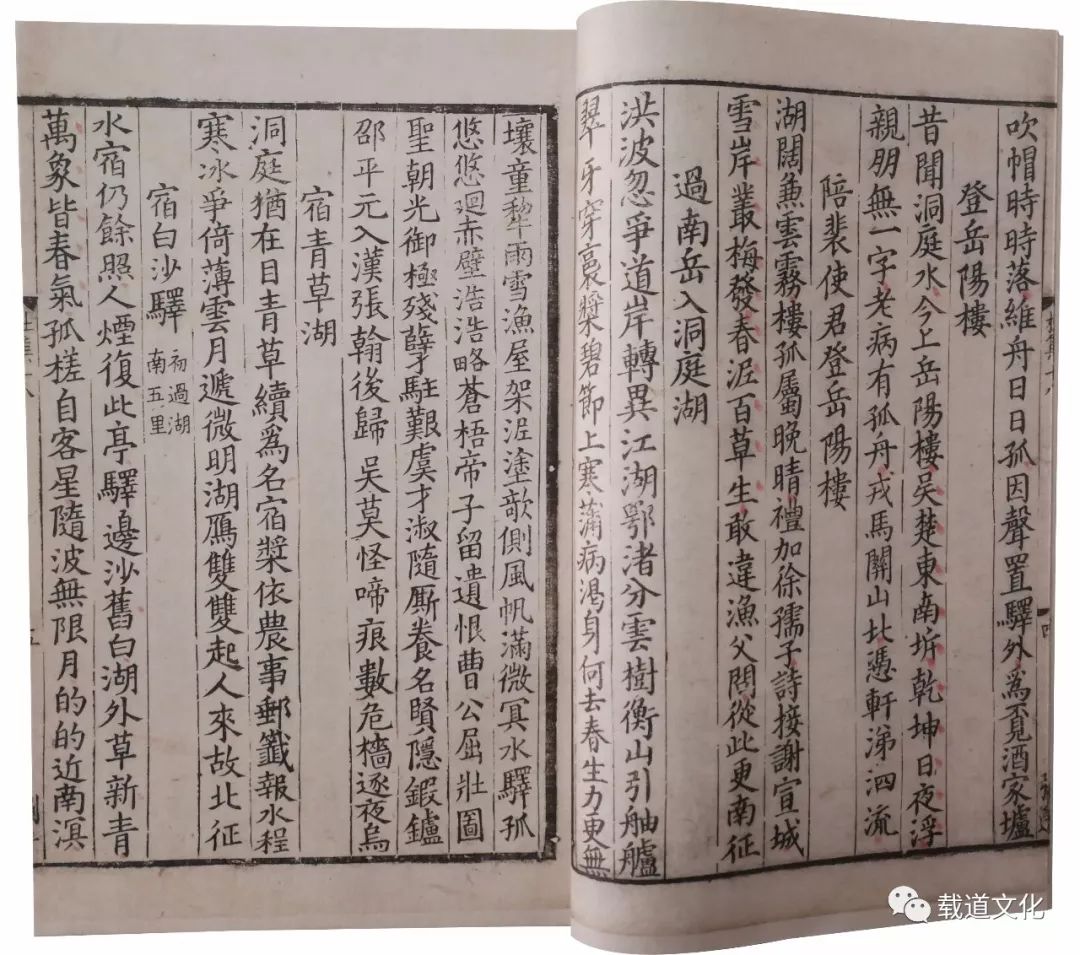 吹帽時時落維舟日日孤因聲置驛外爲覓酒家壚
登岳陽樓
昔聞洞庭水今上岳陽樓吳楚東南坼乾坤日夜浮
親朋無一字老病有孤舟戎馬關山北憑軒涕泗流
陪裴使君登岳陽樓
湖闊兼雲霧樓孤屬晚晴禮加徐孺子詩接謝宣城
雪岸叢梅發春泥百草生敢違漁父問從此更南征
過南岳入洞庭湖
洪波忽爭道岸轉異江湖鄂渚分雲樹衡山引舳艫
翠牙穿裛槳碧節上寒蒲病渴身何去春生力更無
壤童犂雨雪漁屋架泥塗欹側風帆滿微冥水驛孤
悠悠廻赤壁浩浩略蒼梧帝子留遺恨曹公屈壯圖
聖朝光御極殘孽駐艱虞才淑隨厮養名賢隱鍜鑪
邵平元入漢張翰後歸吳莫怪啼痕數危檣逐夜烏
宿青草湖
洞庭猶在目青草續爲名宿槳依農事郵籤報水程
寒冰爭倚薄雲月遞微明湖鴈雙雙起人來故北征
宿白沙驛
初過湖
南五里
水宿仍餘照人煙復此亭驛邊沙舊白湖外草新青
萬象皆春氣孤槎自客星隨波無限月的的近南溟
四
五
载道文化